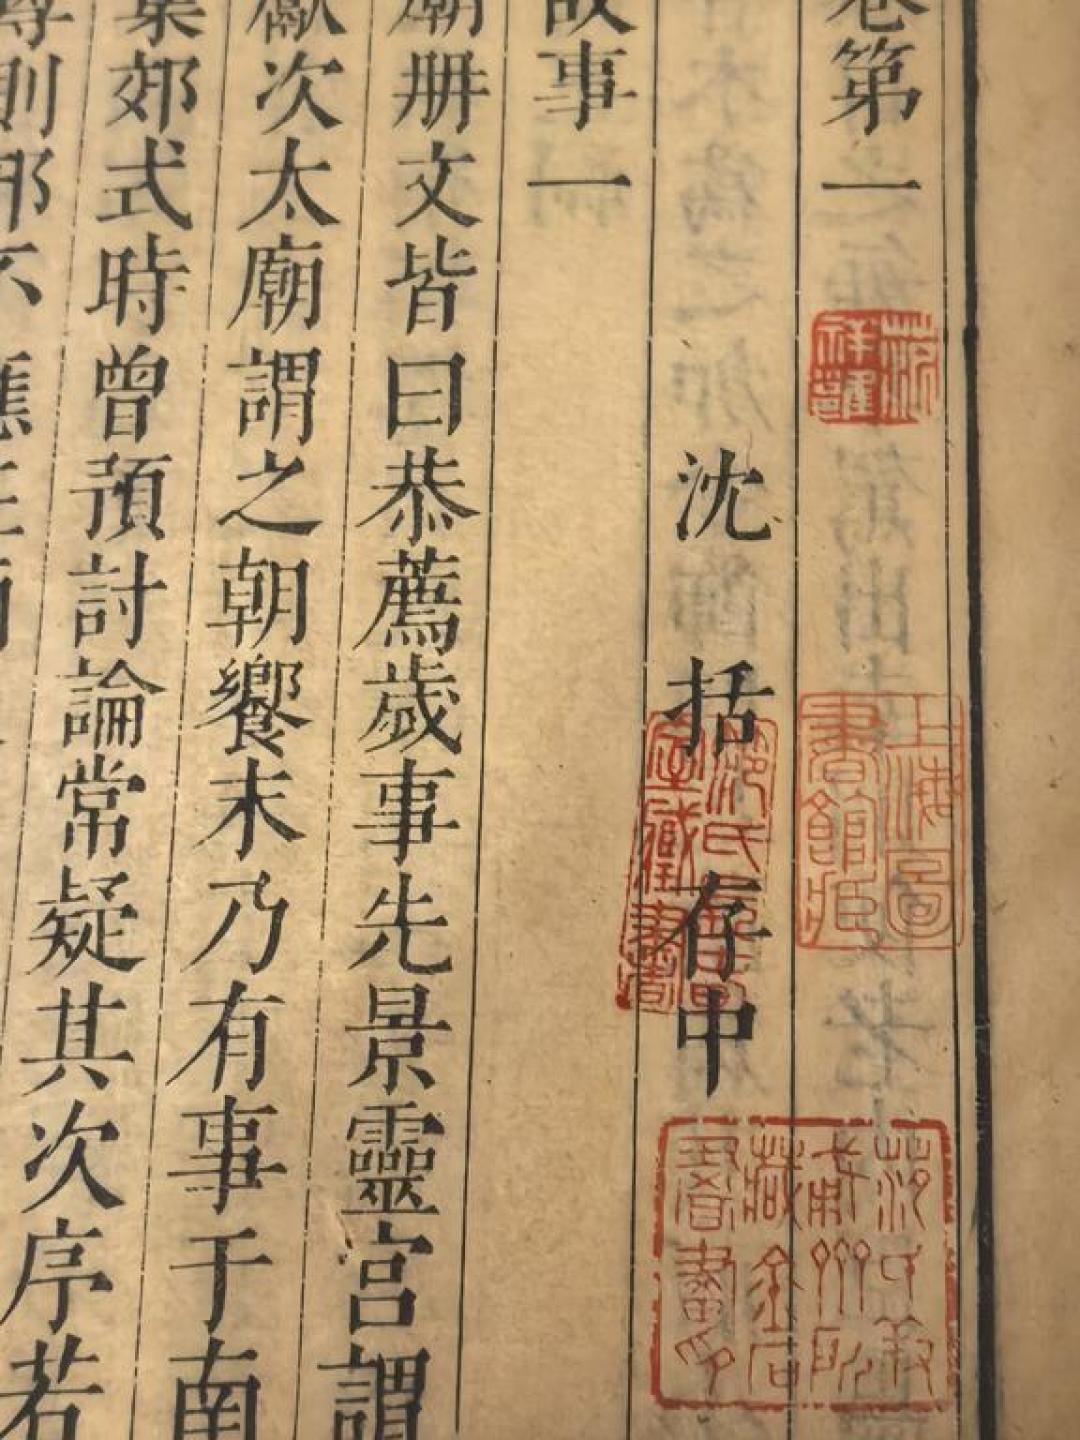 卷第一
范祥雍
上海圖書館藏
沈括存中
故事一
廟冊文皆曰恭薦歲事先景靈宮謂
獻次太廟謂之朝饗末乃有事于南
集郊式時曾預討論常疑其次序若
尊則郊不應在